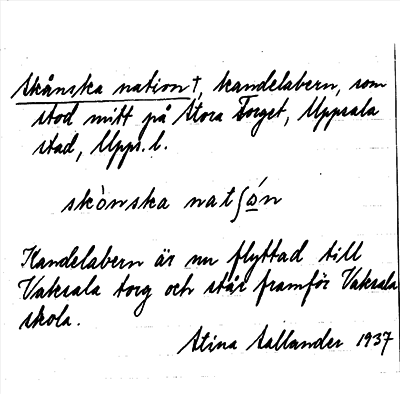 Skånska nation†, kandelabern, som
stod mitt på Stora Torget, Uppsala
stad, Upps. l.
skònska natʃó̲n
Kandelabern är nu flyttad till
Vaksala torg och står framför Vaksala
skola.
Stina Sallander 1937